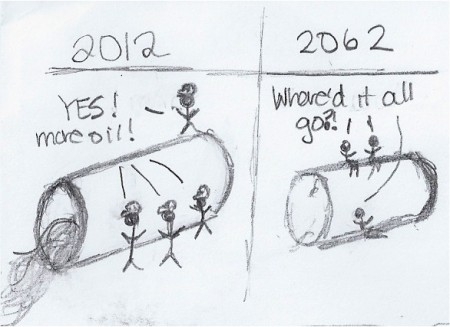 2012
YES!
more oil!
2062
Where'd it all
go?!